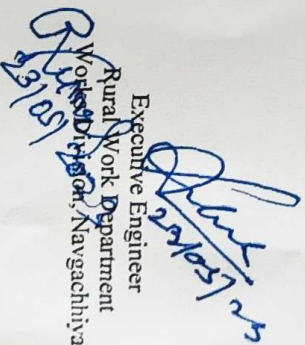 Executive Engineer
Rural Work Department
Works Division, Navgachhiya
23/05/25